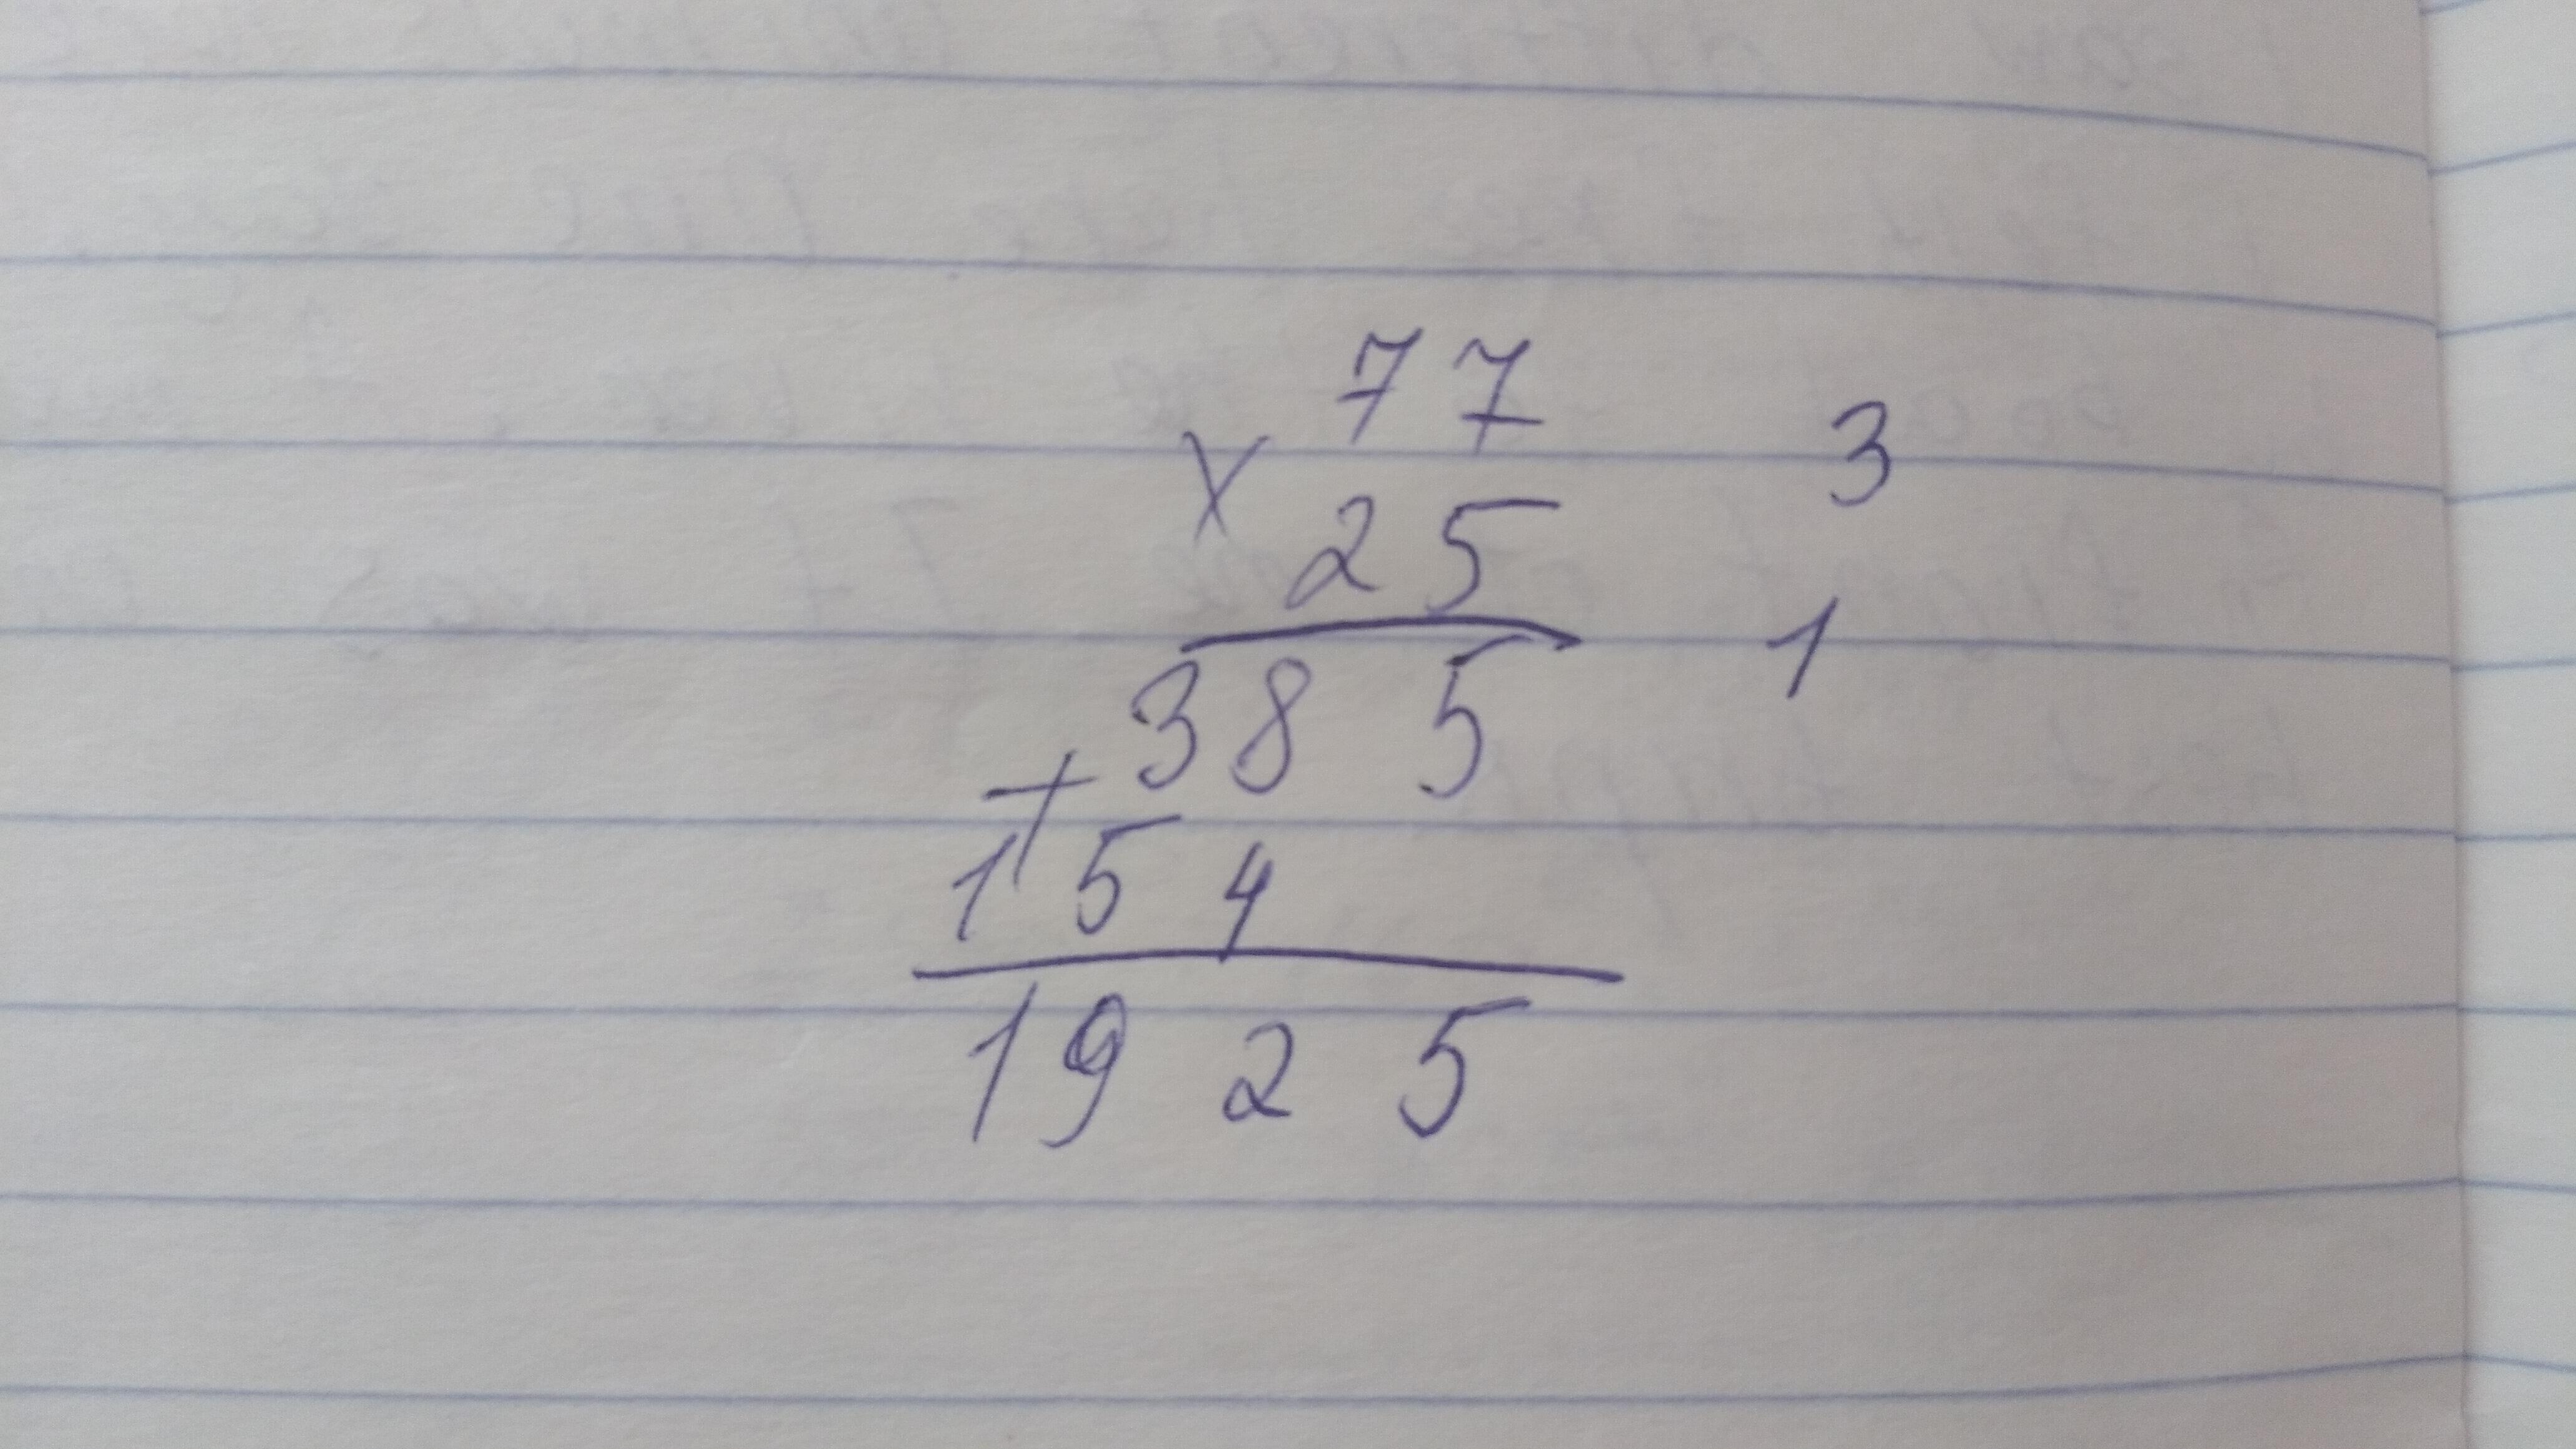 77
x 25 3
1
385
+
154
1925